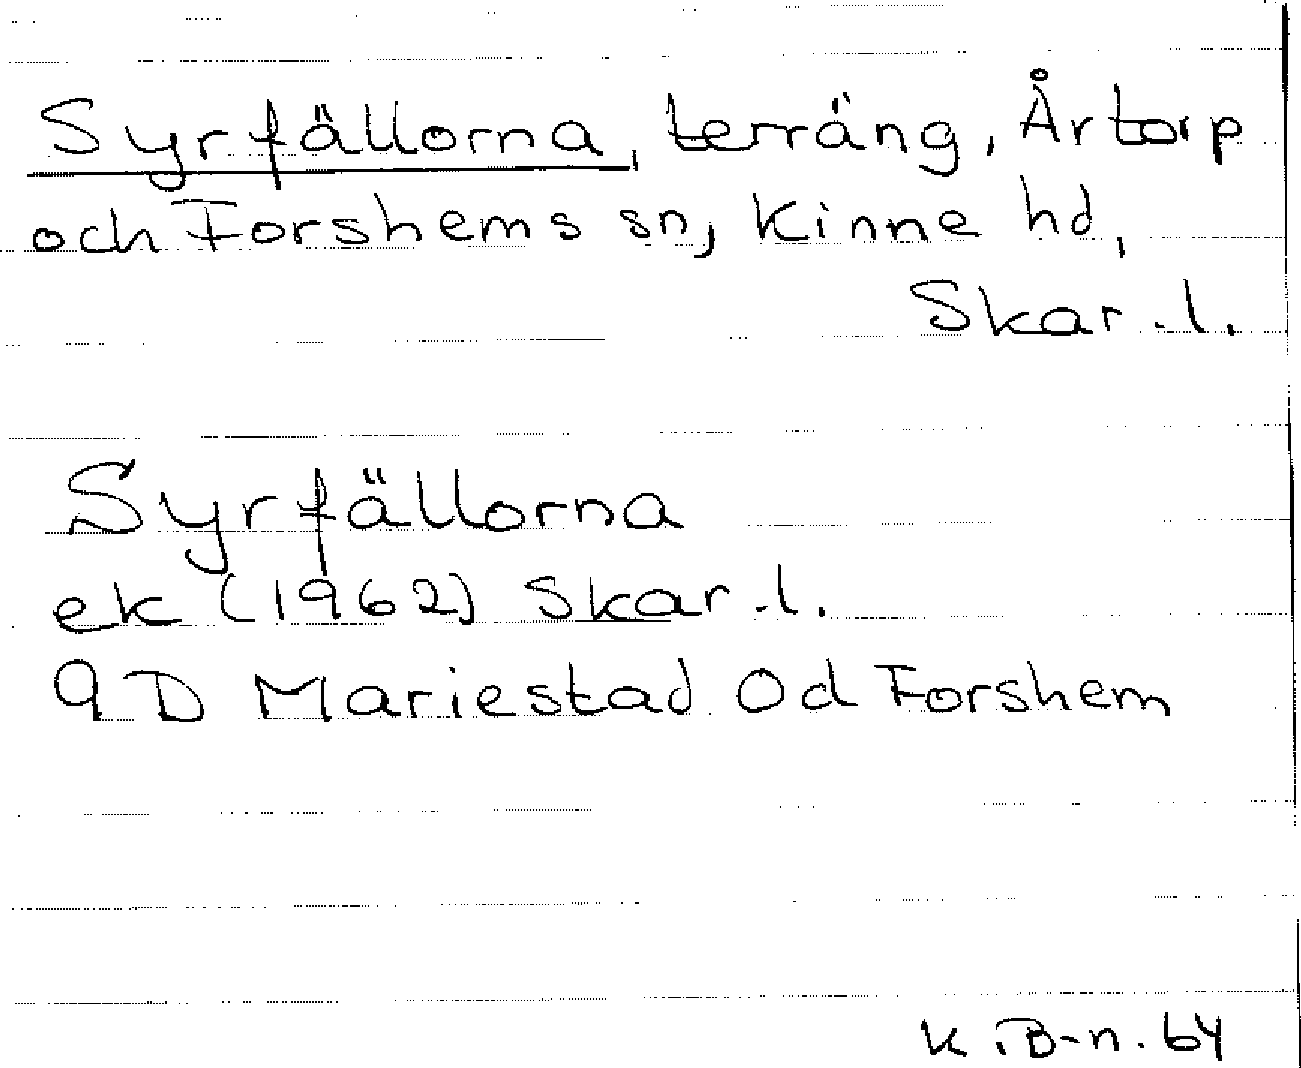 Syrfällorna, terräng, Årtorp
och Forshems sn, Kinne hd,
Skar. l.
Syrfällorna
ek (1962) Skar. l.
9D Mariestad 0d Forshem
K. B-n. 64